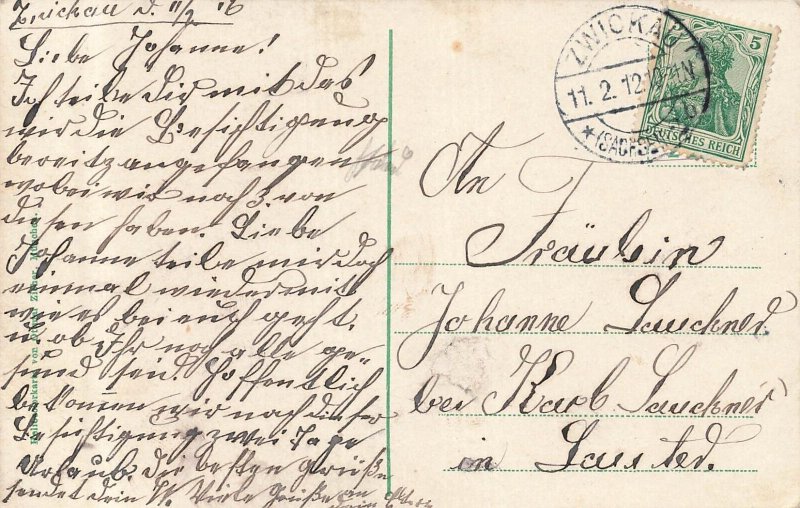 Zwickau d. 11/2 12
Liebe Johanne!
Ich teile dir mit das
wir die Besichtigung
bereitz angefangen
wobei wir noch 3 von
diesen haben. Liebe
Johanne teile mir doch
einmal wieder mit
wie es bei euch geht.
u. ob Ihr noch alle ge-
sund seid. Hoffentlich
bekommen wir nach dieser
Besichtigung zwei Tage
Urlaub. Die besten Grüße
sendet dein W. Viele Grüße an
dein
ZWICKAU
11.2.12
* (SACHS.) *
b
5
DEUTSCHES REICH
An
Fräulein
Johanne Lauckner
bei Karl Lauckner
in
München.